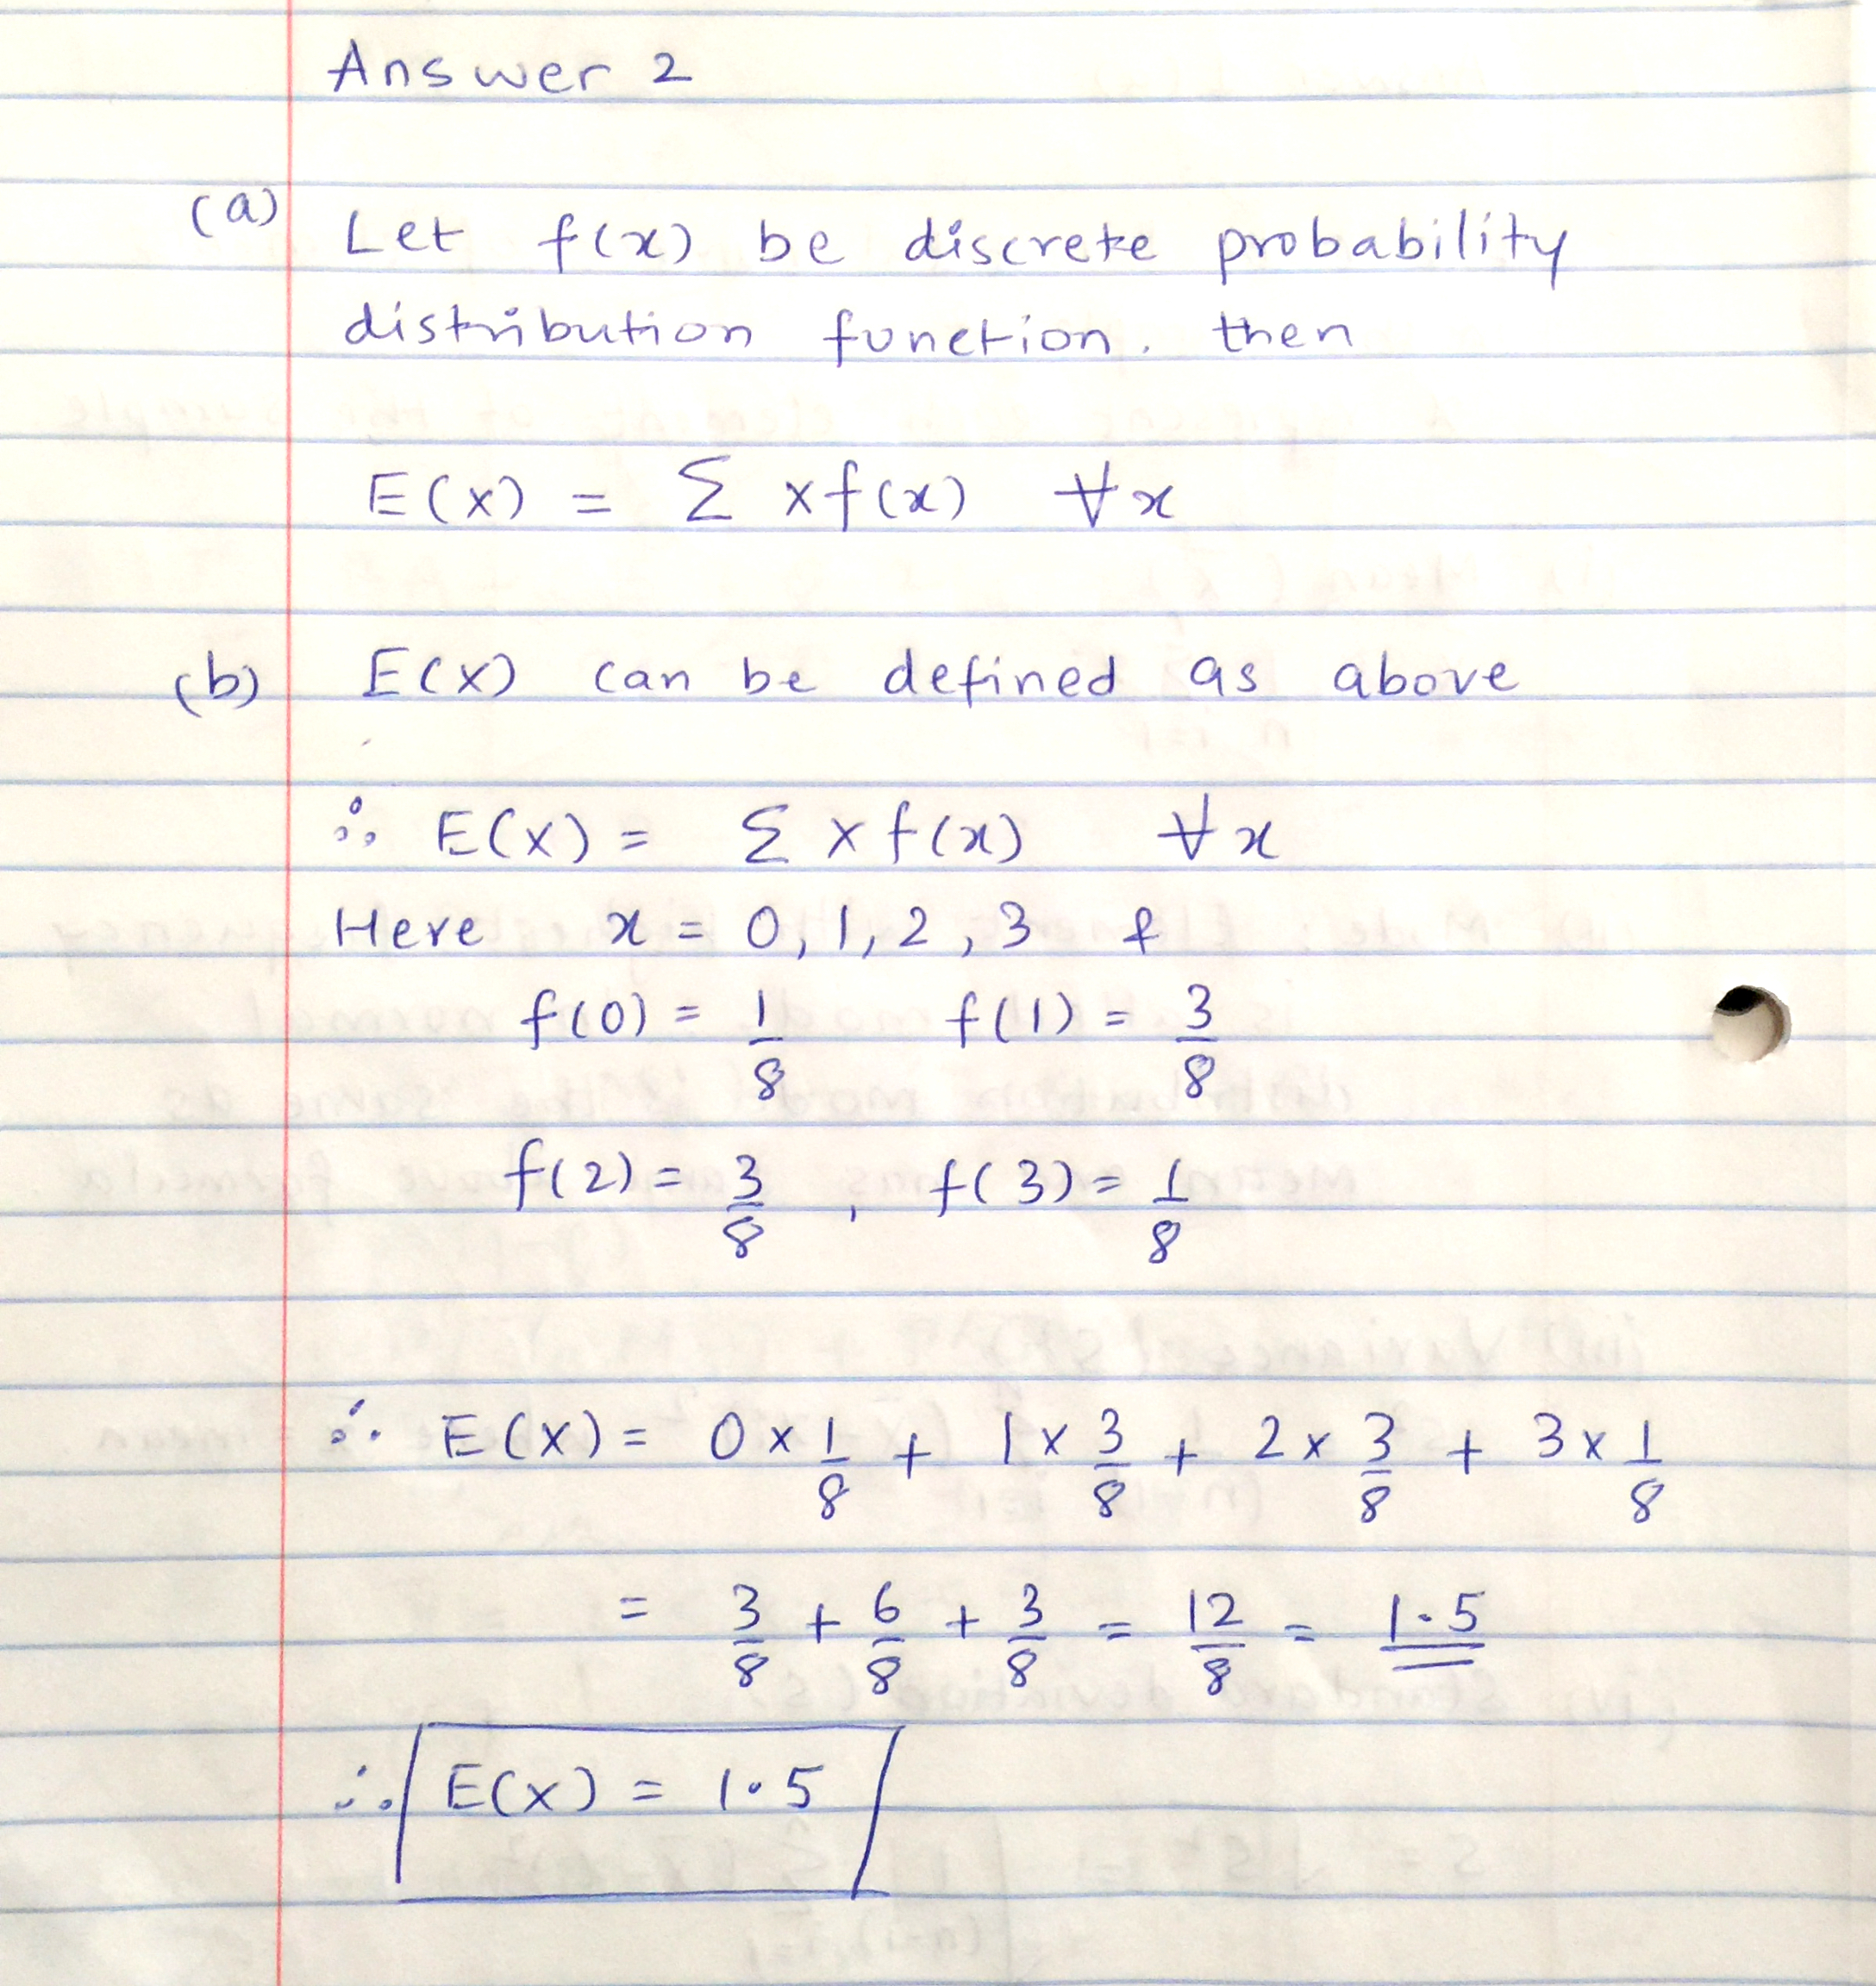 Answer 2
(a) Let f(x) be discrete probability
distribution function. then
E(X) = Σ x f(x) ∀x
(b) E(X) can be defined as above
∴ E(X) = Σ x f(x) ∀x
Here x = 0, 1, 2, 3 &
f(0) = 1/8 f(1) = 3/8
f(2) = 3/8 , f(3) = 1/8
∴ E(X) = 0 × 1/8 + 1 × 3/8 + 2 × 3/8 + 3 × 1/8
= 3/8 + 6/8 + 3/8 = 12/8 = 1.5
∴ E(X) = 1.5